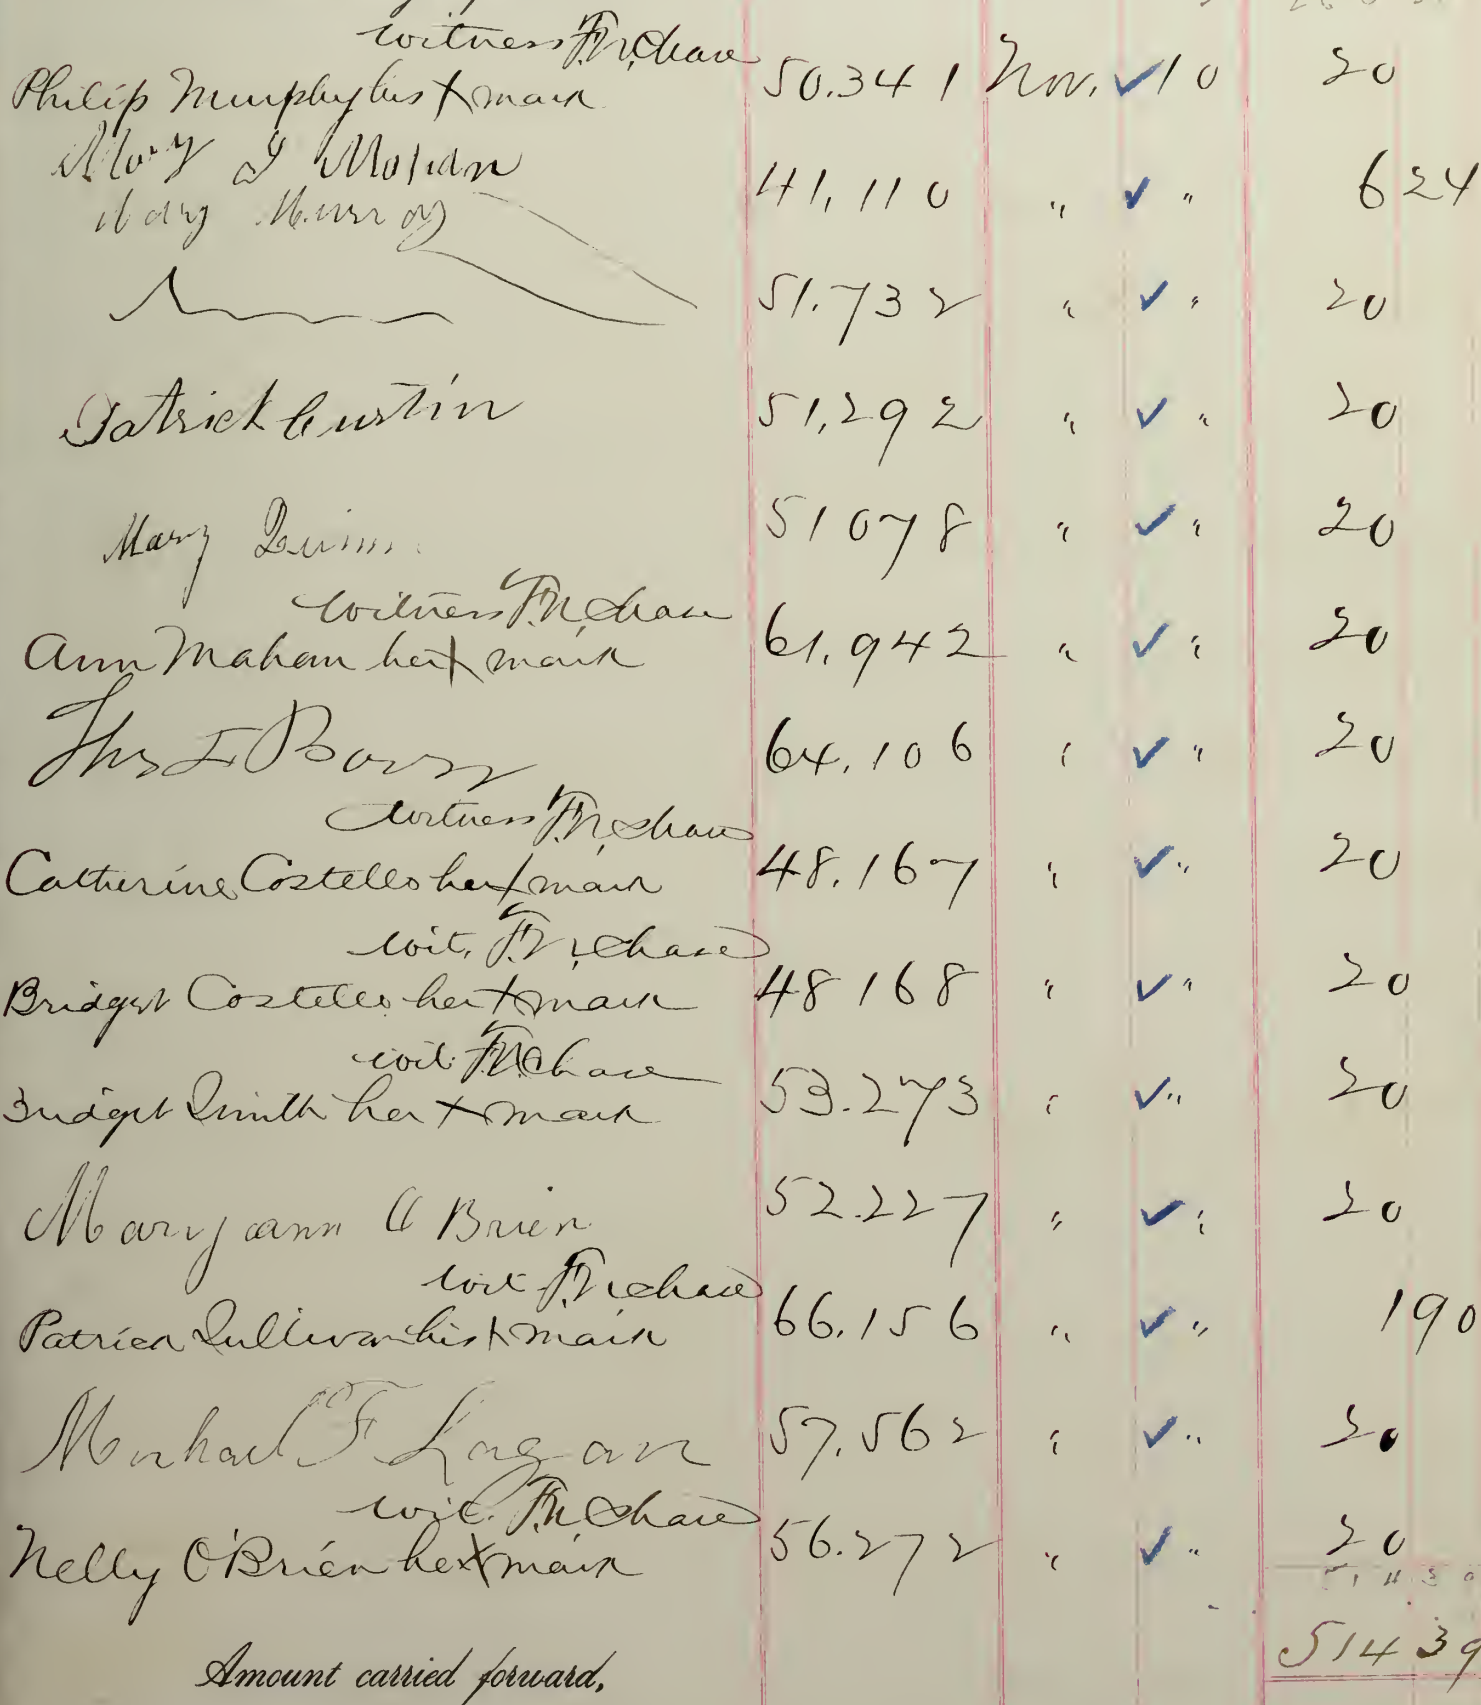 witness F.N. Chase
Philip Murphy his X mark 50.341 Nov. ✓ 10 20
Mary J Mohan 41,110 " ✓ " 624
Mary Murray
51.732 " ✓ " 20
Patrick Curtin 51,292 " ✓ " 20
Mary Quinn 51078 " ✓ " 20
witness F.N. Chase
Ann Mahan her X mark 61,942 " ✓ " 20
Thos F Barry 64.106 " ✓ " 20
witness F.N. Chase
Catherine Costello her X mark 48.167 " ✓ " 20
wit. F.N. Chase
Bridget Costello her X mark 48168 " ✓ " 20
wit. F.N. Chase
Bridget Smith her X mark 53.273 " ✓ " 20
Mary ann O Brien 52.227 " ✓ " 20
wit F.N. Chase
Patrick Sullivan his X mark 66.156 " ✓ " 190
Michael F Lagan 57.562 " ✓ " 20
wit. F.N. Chase
Nelly O'Brien her X mark 56.272 " ✓ " 20
Amount carried forward, 51439